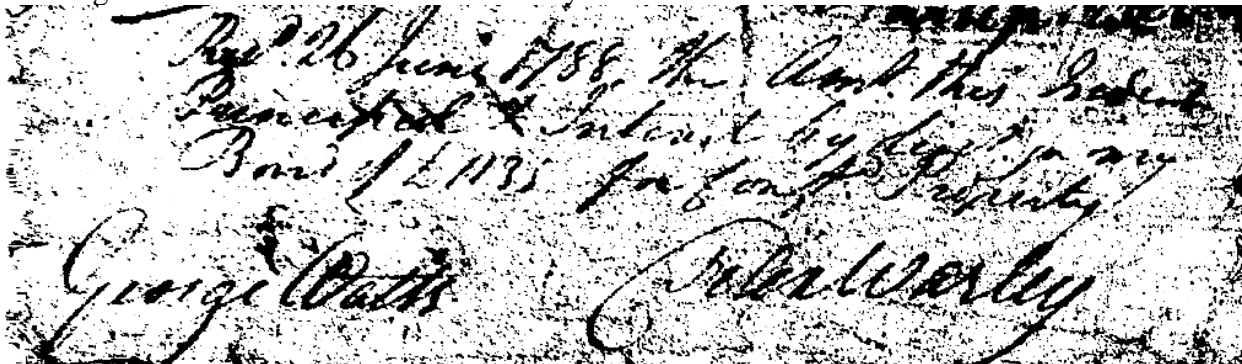 Recd. 26 June 1788, the Amt. this Indent
Principal & Interest by discot. on my
Bond of £1135 for Property
George Watts Felix Warley